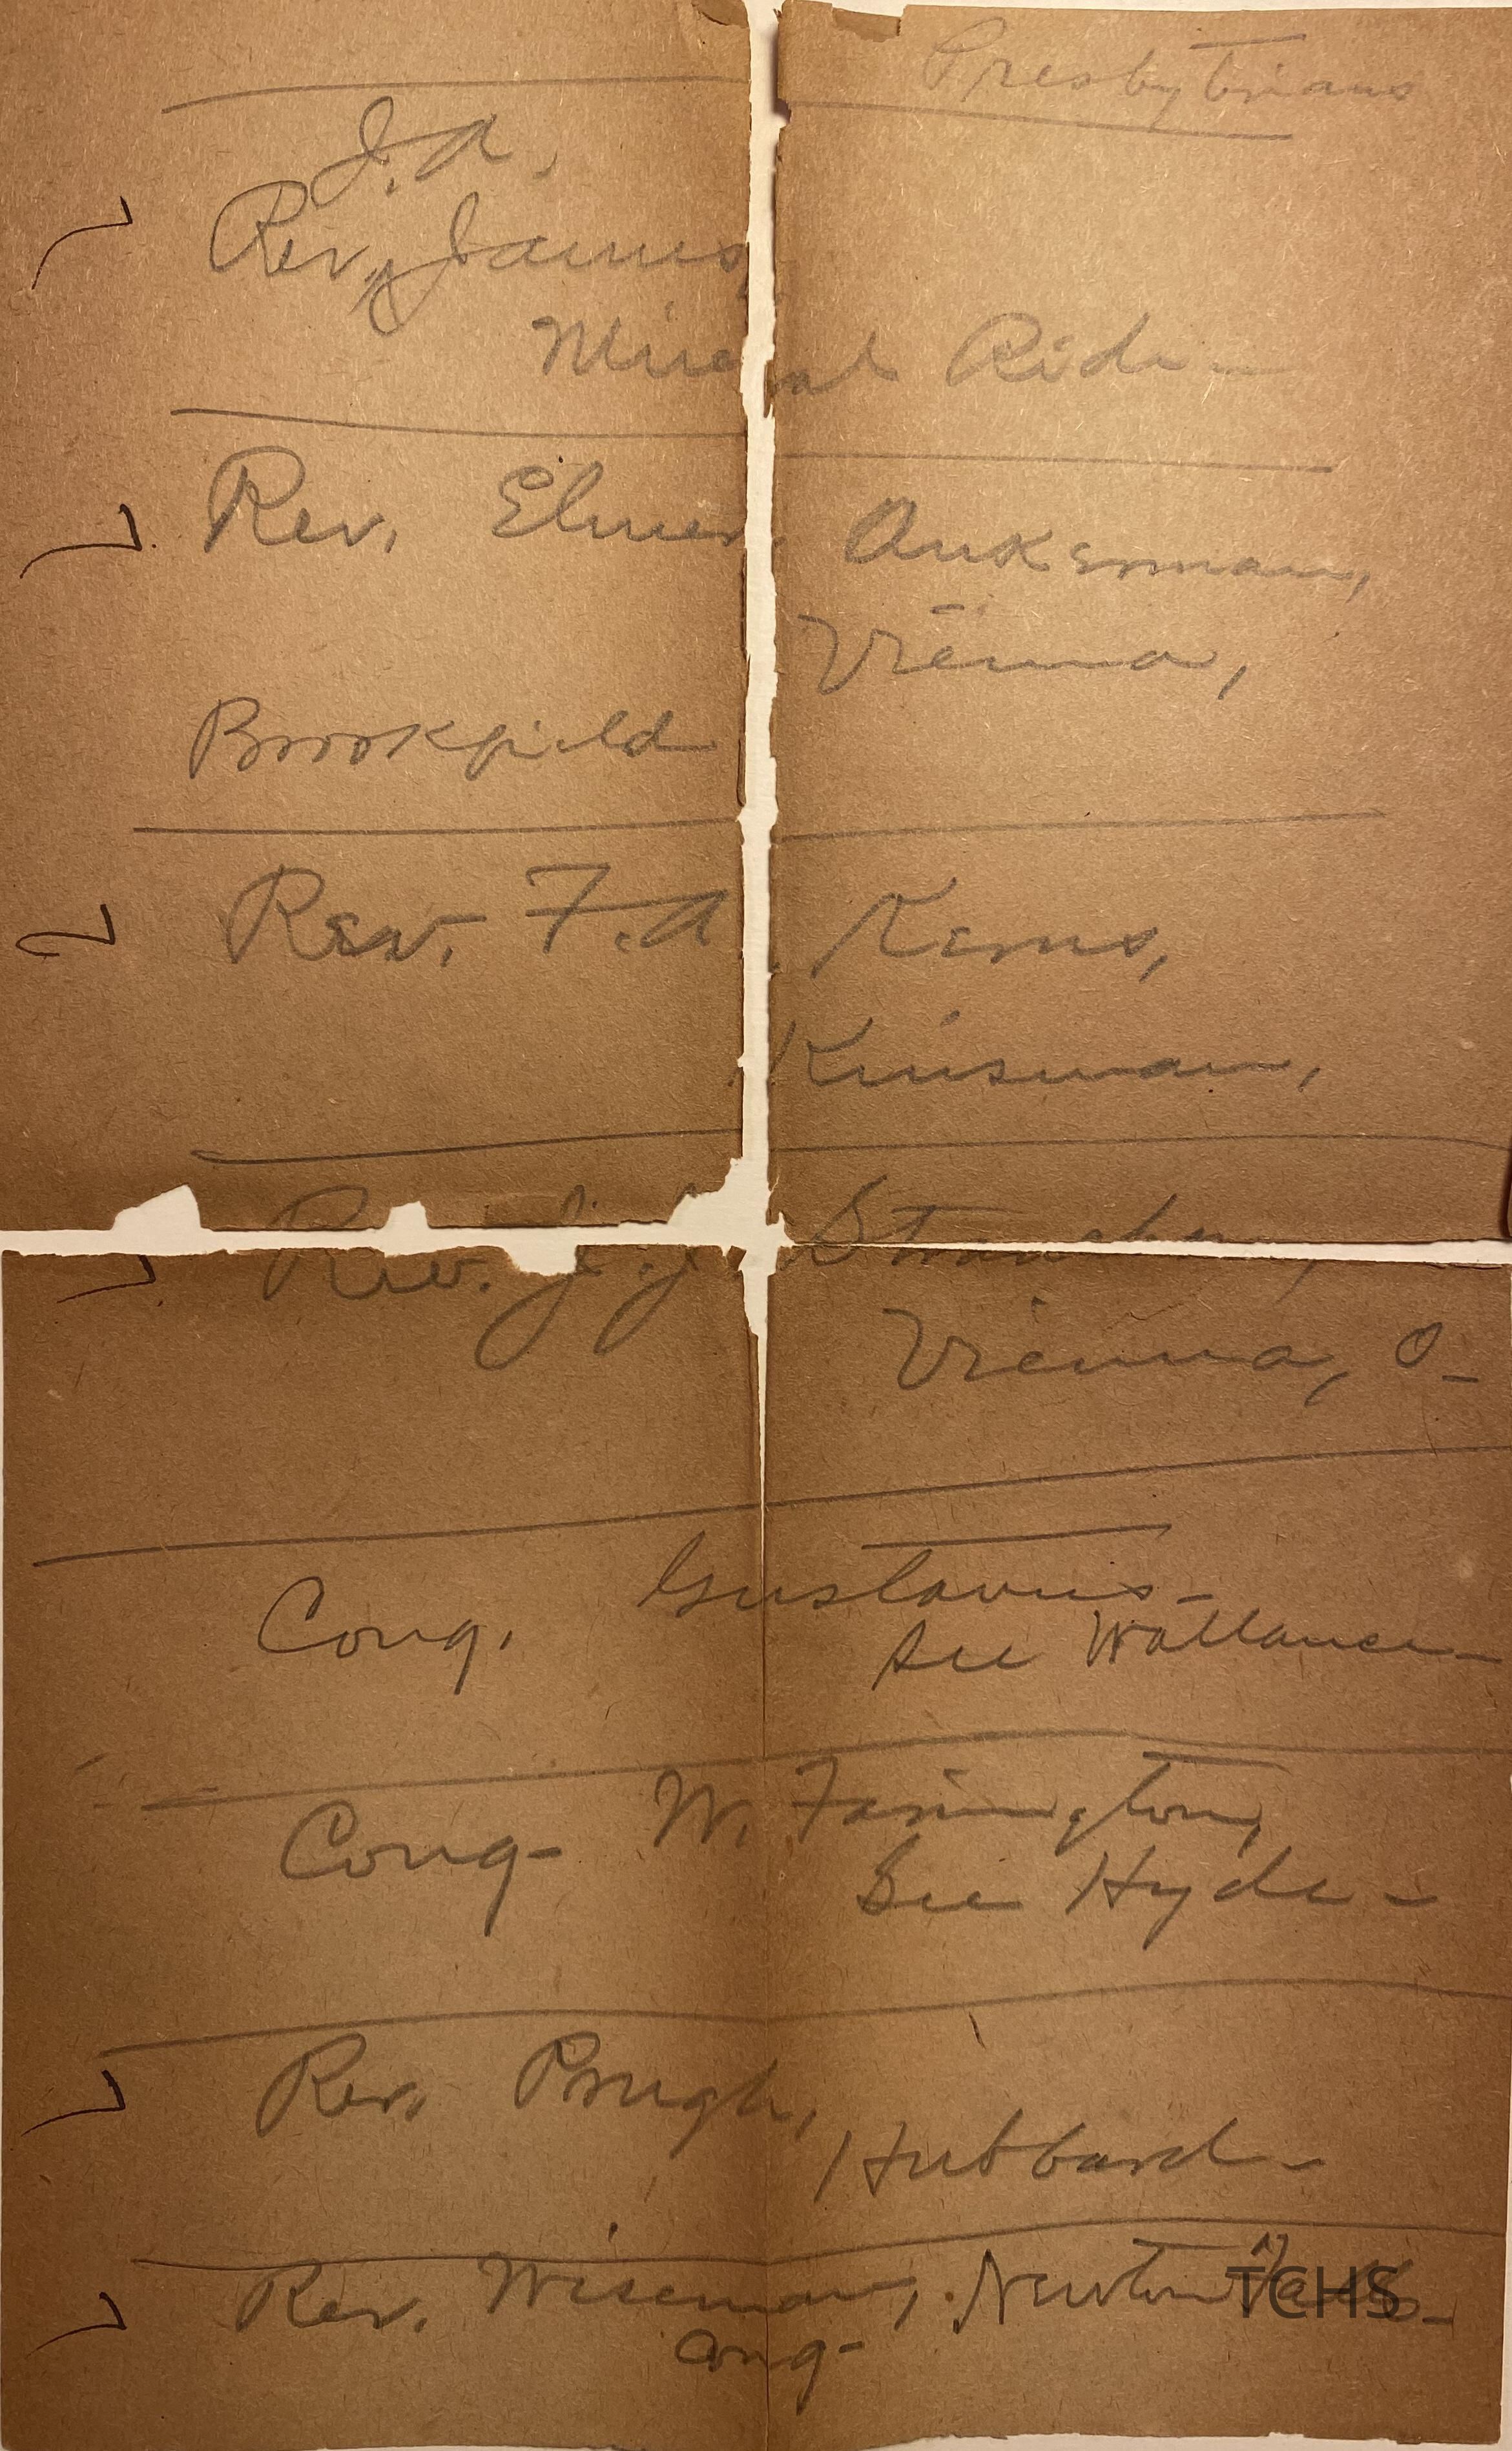 Presbytrians
J.A.
Rev. James,
Mineral Ride -
Rev. Elmer Aukerman,
Vienna,
Brookfield
Rev. F.A. Kerns,
Kinsman,
Rev. J.J.
Vienna, O-
Gustavus-
Cong. See Wallance-
Cong- W. Farmington,
See Hyde-
Rev. Prugh,
Hubbard-
Rev. Wiseman, Newton Falls-
Cong-
TCHS